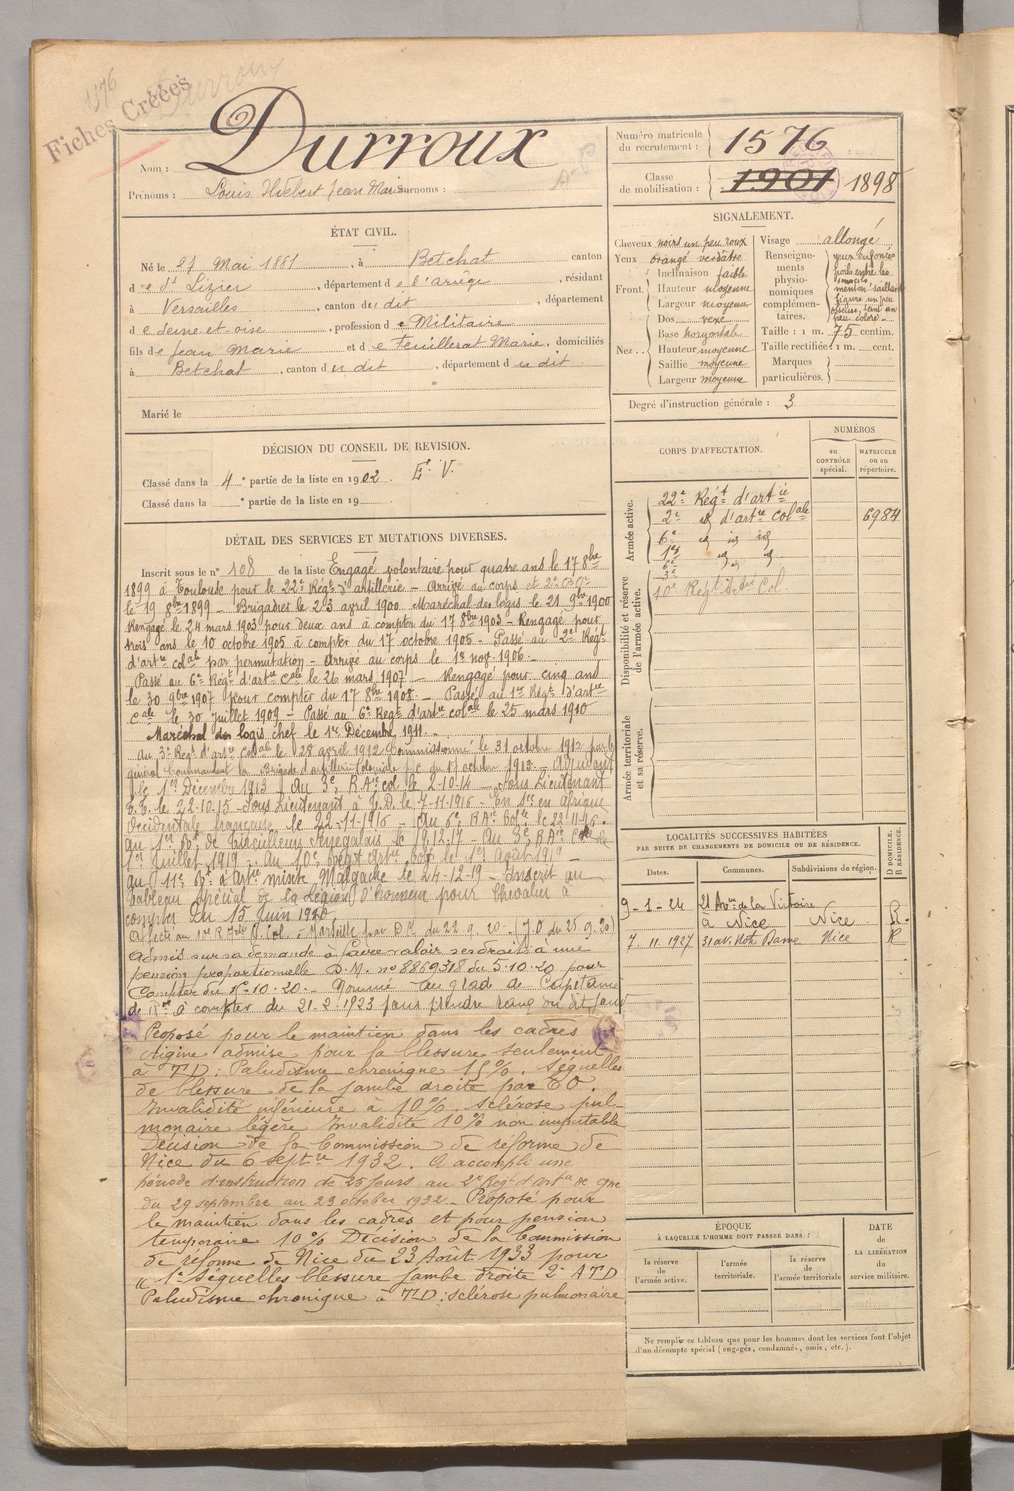 1576
Durroux
Fiches Créées
Nom : Durroux
Prénoms : Louis Hubert Jean Marie Surnoms :
Numéro matricule du recrutement : 1576
Classe de mobilisation : 1901 1898
ÉTAT CIVIL.
Né le 27 Mai 1881, à Betchat canton
de St Lizier, département de l'ariège, résidant
à Versailles, canton du dit, département
de Seine-et-oise, profession de Militaire
fils de Jean Marie et de Feuillerat Marie, domiciliés
à Betchat, canton du dit, département du dit
Marié le
SIGNALEMENT.
Cheveux noirs un peu roux
Yeux orangé verdâtre
Front. Inclinaison faible
Hauteur moyenne
Largeur moyenne
Nez .. Dos vexe
Base horizontale
Hauteur moyenne
Saillie moyenne
Largeur moyenne
Visage allongé
Renseignements physionomiques complémentaires.
yeux enfoncés
poils entre les
sourcils
menton saillant
figure un peu
osseuse, teint un
peu coloré
Taille : 1 m. 75 centim.
Taille rectifiée : 1 m. cent.
Marques particulières.
Degré d'instruction générale : 3
DÉCISION DU CONSEIL DE REVISION.
Classé dans la 4e partie de la liste en 1902. Eé V.
Classé dans la e partie de la liste en 19
DÉTAIL DES SERVICES ET MUTATIONS DIVERSES.
Inscrit sous le n° 108 de la liste Engagé volontaire pour quatre ans le 17 8bre
1899 à Toulouse pour le 22e Régt d'artillerie – Arrivé au corps et 2e
le 19 8bre 1899 – Brigadier le 23 avril 1900 Maréchal des logis le 21 9bre 1900
Rengagé le 24 mars 1903 pour deux ans à compter du 17 8bre 1903 – Rengagé pour
trois ans le 10 octobre 1905 à compter du 17 octobre 1905 – Passé au 2e Régt
d'artie colale par permutation – Arrivé au corps le 1er nov. 1906.
Passé au 6e Régt d'artie cale le 26 mars 1907 – Rengagé pour cinq ans
le 30 9bre 1907 pour compter du 17 8bre 1908 – Passé au 1er Régt d'artie
cale le 30 juillet 1909 – Passé au 6e Régt d'artie colale le 25 mars 1910
Maréchal des logis chef le 1er Décembre 1911.
au 3e Régt d'artie colale le 28 avril 1912 Commissionné le 31 octobre 1912 par le
général Commandant la Brigade d'artillerie Coloniale p.c. du 17 octobre 1913 – Adjudant
le 1er Décembre 1913 – Au 3e R.Aie col le 2-10-14 – Sous Lieutenant
T.T. le 22-10-15 – Sous Lieutenant à T.D. le 7-11-1916 – En sce en Afrique
Occidentale française le 22-11-1916 – Au 6e RAie Colle le 22-11-16 –
au 1er Bon de Tirailleurs Sénégalais le 19.12.17 – Au 3e RAie Cole le
1er Juillet 1919 – Au 10e Régt Artie Cole le 1er Août 1919 –
au 11e Bon d'Artie mixte Malgache le 24-12-19 – Inscrit au
tableau spécial de la Légion d'Honneur pour Chevalier à
compter du 15 Juin 1920,
Affecté au Col. à Marseille par D.M. du 22.9.20 – (J.O du 25.9.20)
Admis sur sa demande à faire valoir ses droits à une
pension proportionnelle D.M. n° 8869318 du 5.10.20 pour
Compter du 1er-10-20 – Nommé au grad de Capitaine
de Rve à compter du 21-2-1923 sans prendre rang du dit jour
Proposé pour le maintien dans les cadres
origine admise pour la blessure seulement
à T.D : Paludisme chronique 15%. Séquelles
de blessure de la jambe droite par EO.
Invalidité inférieure à 10%. sclérose pul-
monaire légère Invalidité 10% non imputable
Décision de la Commission de réforme de
Nice du 6 septre 1932. A accompli une
période d'instruction de 25 jours au 2e Régt d'artie de gne
du 29 septembre au 23 octobre 1932 – Proposé pour
le maintien dans les cadres et pour pension
temporaire 10% Décision de la Commission
de réforme de Nice du 23 Août 1933 pour
" 1° Séquelles blessure jambe droite 2° A T D
Paludisme chronique à TD : sclérose pulmonaire
CORPS D'AFFECTATION.
NUMÉROS
au CONTRÔLE spécial.
MATRICULE ou au répertoire.
Armée active.
22e Régt d'artie
2e id d'artie colale 6984
6e id id id
1er id id
6e id id
3e
Disponibilité et réserve de l'armée active.
10e Régt Artie Col
Armée territoriale et sa réserve.
LOCALITÉS SUCCESSIVES HABITÉES
PAR SUITE DE CHANGEMENTS DE DOMICILE OU DE RÉSIDENCE.
Dates. Communes. Subdivisions de région. D DOMICILE. R RÉSIDENCE.
9-1-24 21 Avue de la Victoire
à Nice Nice R.
7.11.1927 31 av. Notre Dame Nice R
ÉPOQUE
À LAQUELLE L'HOMME DOIT PASSER DANS :
DATE DE LA LIBÉRATION du service militaire.
la réserve de l'armée active.
l'armée territoriale.
la réserve de l'armée territoriale
Ne remplir ce tableau que pour les hommes dont les services font l'objet
d'un décompte spécial (engagés, condamnés, omis, etc.).